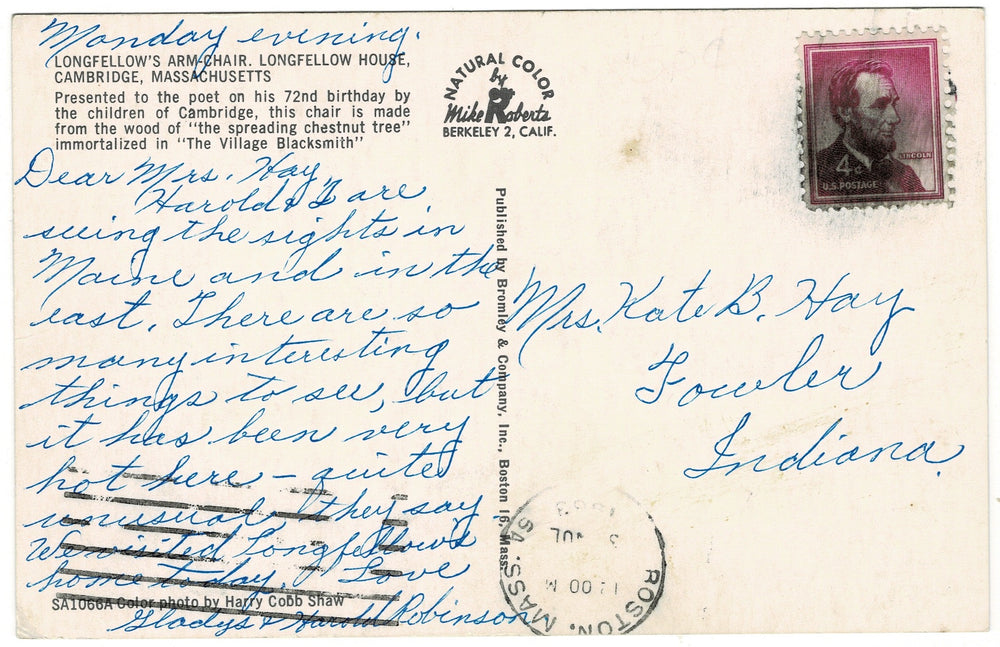 Monday evening.
LONGFELLOW'S ARM-CHAIR. LONGFELLOW HOUSE,
CAMBRIDGE, MASSACHUSETTS
Presented to the poet on his 72nd birthday by
the children of Cambridge, this chair is made
from the wood of "the spreading chestnut tree"
immortalized in "The Village Blacksmith"
Dear Mrs. Hay,
Harold & I are
seeing the sights in
Maine and in the
east. There are so
many interesting
things to see, but
it has been very
hot here – quite
unusual they say.
We visited Longfellow's
home today. Love
Gladys & Harold Robinson
SA1066A Color photo by Harry Cobb Shaw
NATURAL COLOR
by
Mike Roberts
BERKELEY 2, CALIF.
Published by Bromley & Company, Inc., Boston 16, Mass.
4¢
LINCOLN
U.S. POSTAGE
Mrs. Kate B. Hay
Fowler
Indiana.
BOSTON, MASS.
JUL